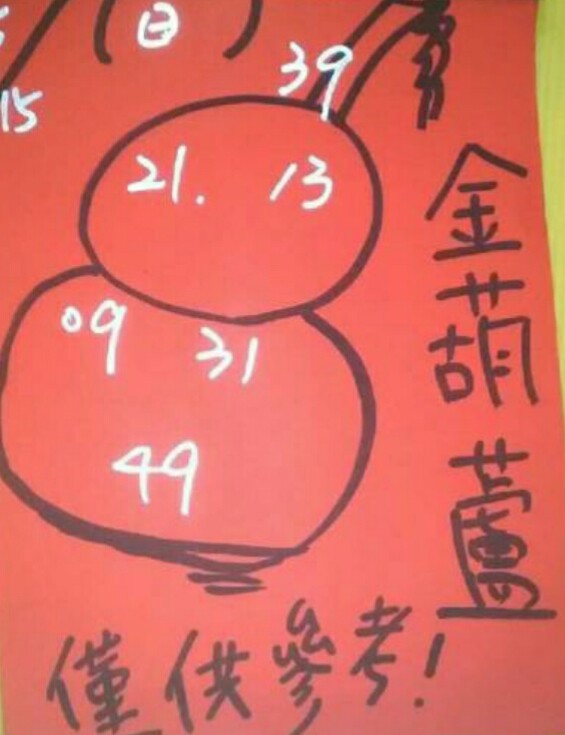 (日)
15
39
21. 13
09 31
49
金葫蘆
僅供參考!